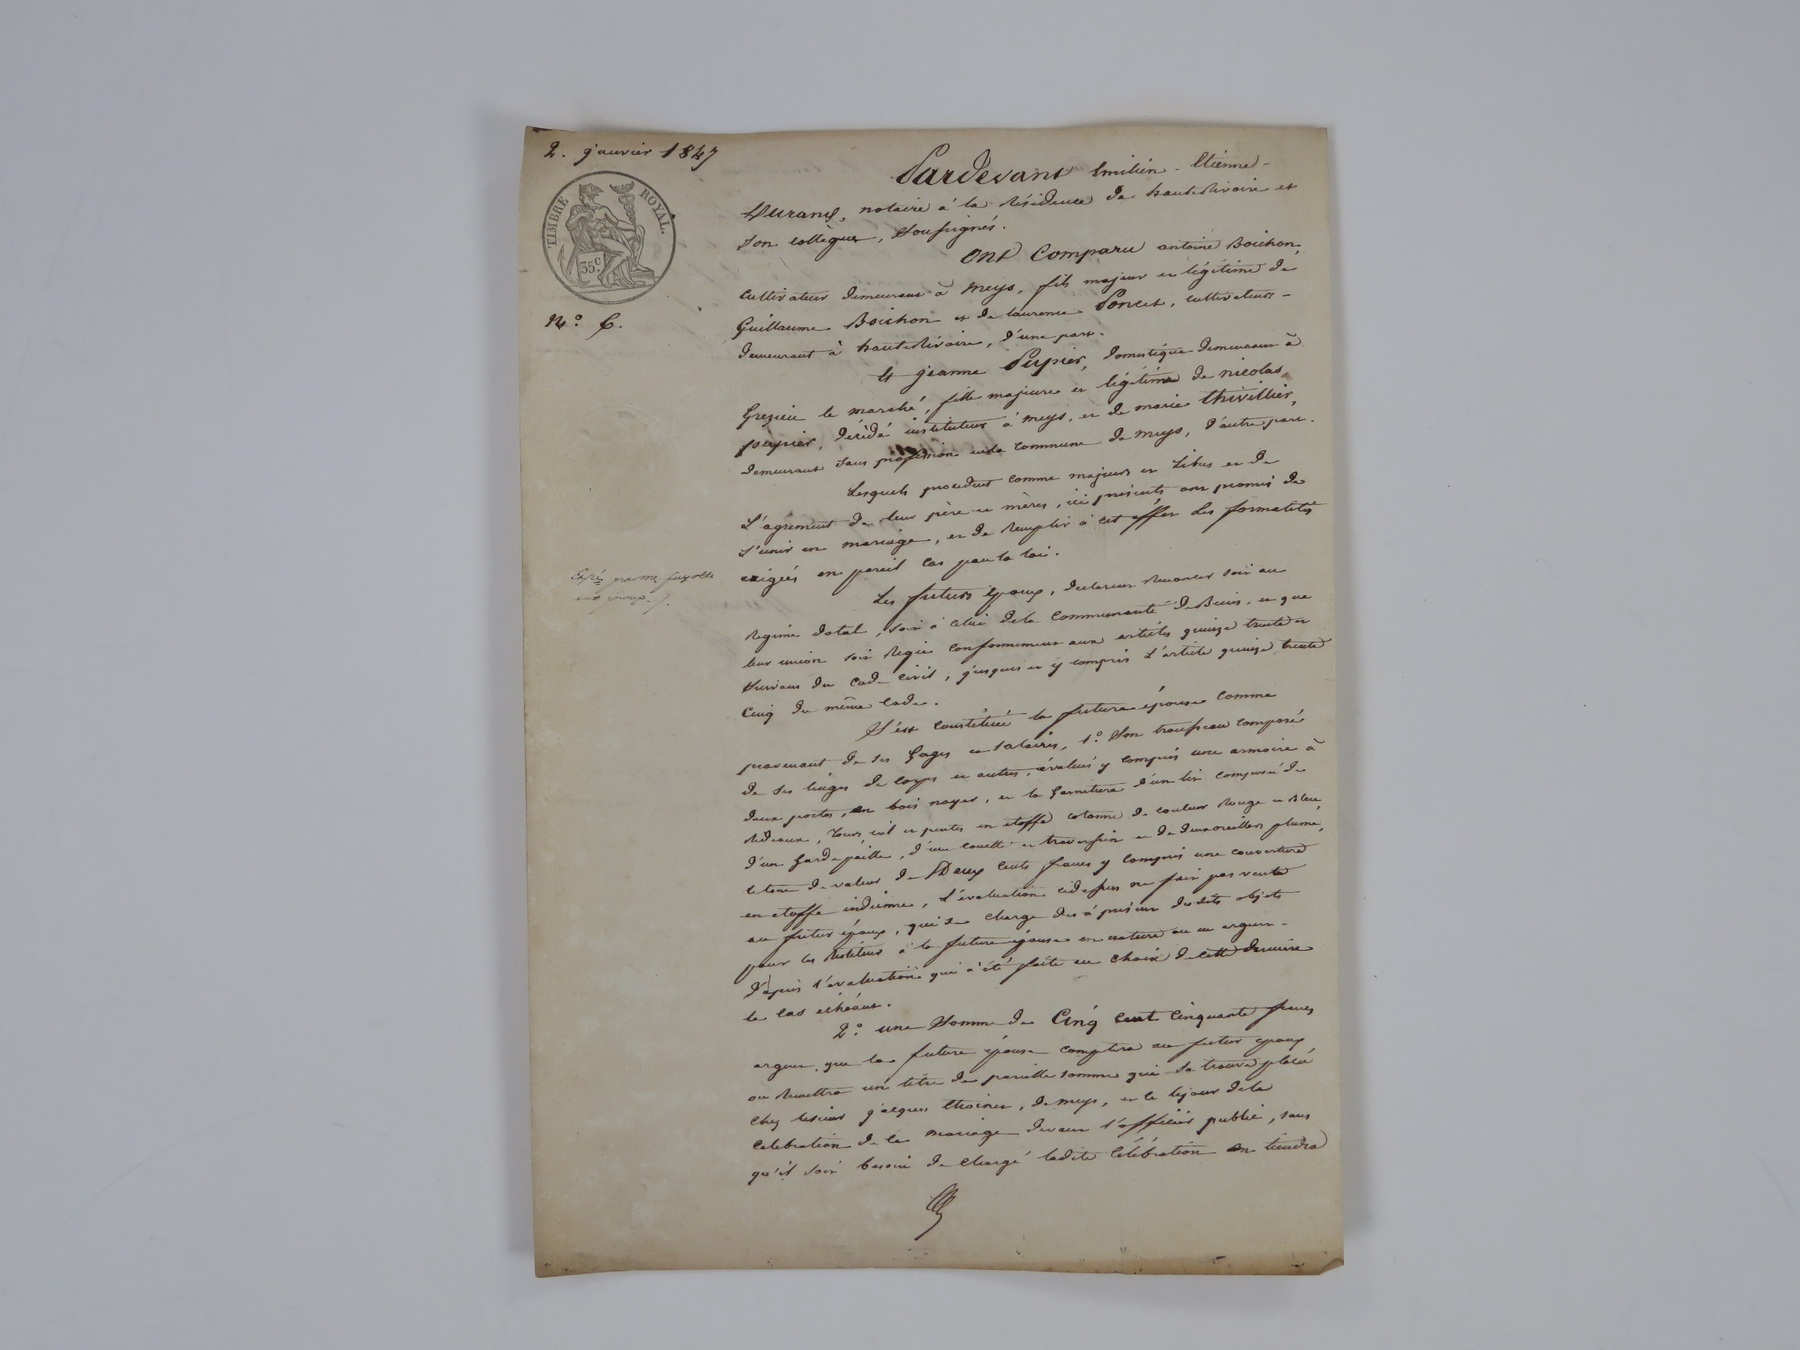 2. janvier 1847
TIMBRE ROYAL.
35c.
N.o 6.
Pardevant Emilien - Etienne -
Durand, notaire à la résidence de hauterivoire et
son collègue, soussignés.
Ont Comparu antoine Boichon,
cultivateur demeurant à meys, fils majeur et légitime de
Guillaume Boichon et de laurence Poncet, cultivateurs -
demeurant à hauterivoire, d'une part.
Et jeanne Pupier, domestique demeurant à
Grezieu le marché, fille majeure et légitime de nicolas
pupier, décédé instituteur à meys, et de marie thivillier,
demeurant sans profession en la commune de meys, d'autre part.
Lesquels procédant comme majeurs et libres et de
l'agrement de leur père et mères, ici présents ont promis de
s'unir en mariage, et de remplir à cet éffet les formalités
exigées en pareil cas par la loi.
Les futurs époux, declarent renoncer soit au
régime dotal, soit à celui de la communauté de Biens, et que
leur union soit régie conformement aux articles quinze trente et
suivans du code civil, jusques et y compris l'article quinze trente
cinq du même code.
S'est constitué la future épouse comme
provenant de ses gages et salaires, 1.o Son trousseau composé
de ses linges de corps et autres, évalués y compris une armoire à
deux portes, en bois noyer, et la garniture d'un lit composé de
rideaux, tours, ciel et pentes en etoffe cotonne de couleur rouge et bleu,
d'un garde paille, d'une couette et traversin et de deux oreillers plume,
le tout de valeur de Deux cents francs y compris une couverture
en etoffe indienne, l'évaluation cidessus ne fait pas vente
au futur époux, qui se charge dès à présent desdits objets
pour les restituer à la future épouse en nature ou en argent -
d'après l'evaluation qui a été faite au choix de cette dernière
le cas échéant.
2.o une somme de Cinq cent cinquante francs
argent, que la future épouse comptera au futur epoux
ou remettra un titre de pareille somme qui se trouve placée
chez le sieur jacques , de meys, et le jour de la
celebration de le mariage devant l'officier public, sans
qu'il soit besoin de chargé ladite célébration en tiendra